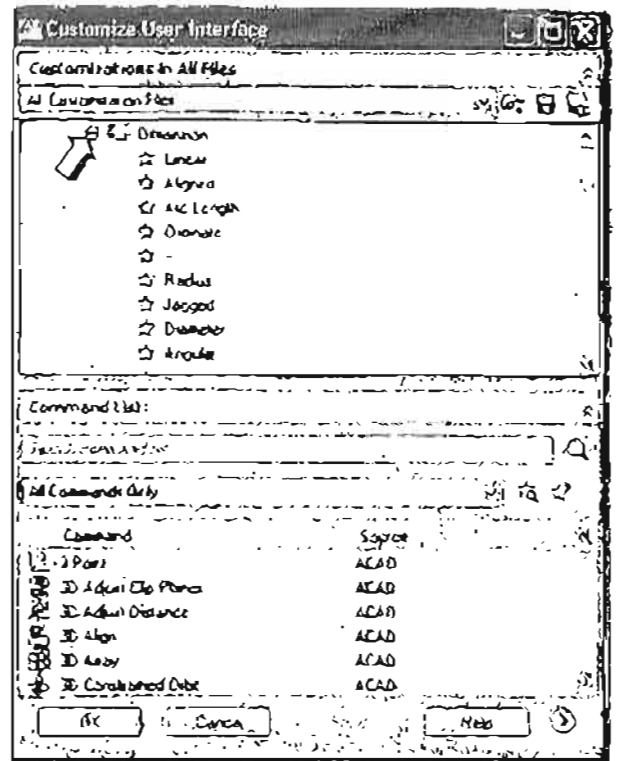 Customize User Interface
Customizations in All Files
All Customization Files
Dimension
Linear
Aligned
Arc Length
Ordinate
-
Radius
Jogged
Diameter
Angular
Command List:
All Commands Only
Command Source
ACAD
3D Adjust Clip Planes ACAD
3D Adjust Distance ACAD
3D Align ACAD
3D Array ACAD
3D Constrained Orbit ACAD
OK Cancel Help